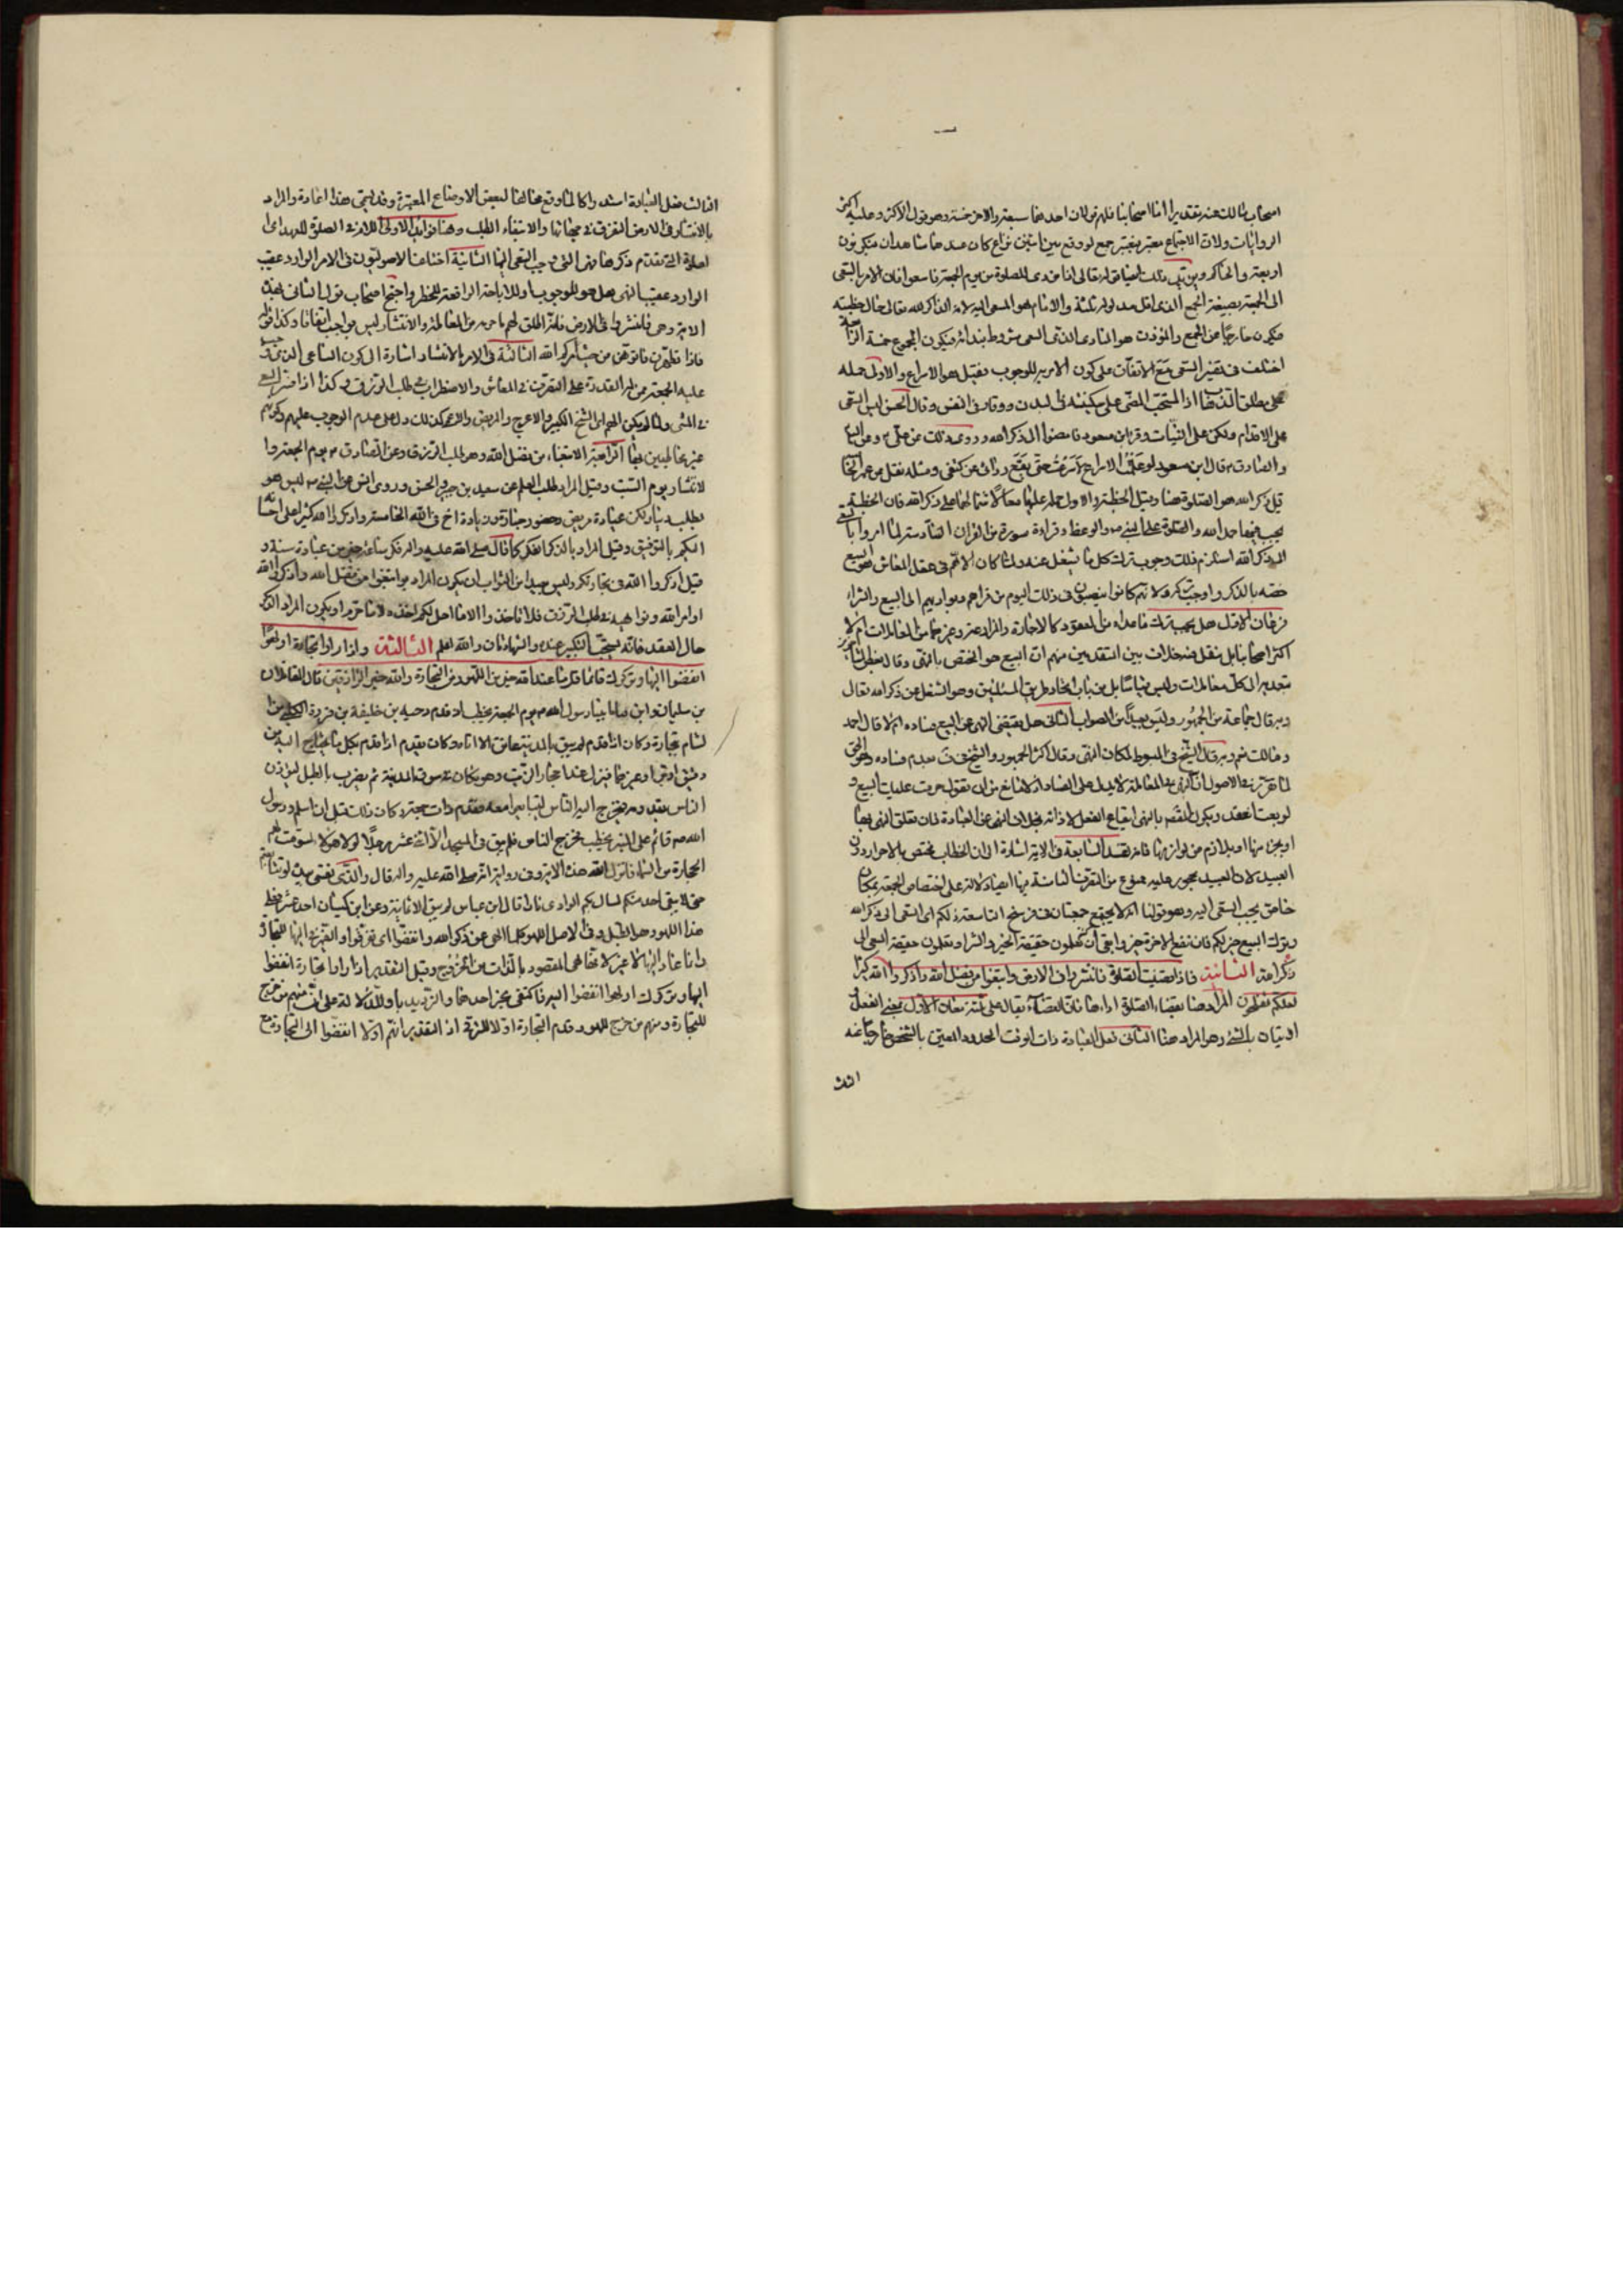 اصحاب مالك عنه تقديرا اما اصحابنا فلهم قولان احدهما سبعة والاخر خمسة وهو قول الاكثر وعليه اكثر
الروايات ولان الاجتماع معتبر فيعتبر جمع لو وقع بين اثنين نزاع كان عندهما شاهدان فيكونون
اربعة والحاكم
الى الجمعة بصيغة الجمع الذى اقل مدلوله ثلثة والامام هو المسعى اليه لانه الذاكر لله تعالى حال خطبته
فيكون خارجا عن الجمع والمؤذن هو المنادى الذى السعى مشروط بندائه فيكون المجموع خمسة الرابعة
اختلف فى تفسير السعى مع الاتفاق على كون الامر به للوجوب فقيل هو الاسراع والاولى حمله
على مطلق الذهاب اذ المستحب المضى على سكينة فى البدن ووقار فى النفس وقال الحسن ليس السعى
على الاقدام ولكن على النيات وقرا ابن مسعود فامضوا الى ذكر الله وروى ذلك عن على
والصادق قال ابن مسعود لو علمت الاسراع لاسرعت حتى يقع ردائى عن كتفى ومثله نقل عن عمر
قيل ذكر الله هو الصلوة هنا وقيل الخطبة والاولى حمله عليهما معا لاشتمالهما على ذكر الله فان الخطبة
يجب فيها حمد الله والصلوة على النبى والوعظ وقراءة سورة من القران السادسة لما امروا بالسعى
الى ذكر الله استلزم ذلك وجوب ترك كل ما يشغل عنه ولما كان الاهم فى شغل المعاش هو البيع
خصه بالذكر واوجب تركه ولانهم كانوا ينصبون فى ذلك اليوم من قراهم وبواديهم الى البيع والشراء
فرعان الاول هل يجب ترك ما عداه من العقود كالاجارة والمزارعة وغيرهما من المعاملات ام لا
اكثر اصحابنا بل نقل ضد خلاف بين المتقدمين منهم ان البيع هو المختص بالنهى وقال بعض
بتعديه الى كل معاملات وليس قياسا بل من باب اتحاد طريق المسئلتين وهو الشغل عن ذكر الله تعالى
وبه قال جماعة من الجمهور وليس بعيدا من الصواب الثانى هل يقتضى النهى عن البيع فساده ام لا قال احمد
ومالك نعم وبه قال الشيخ فى المبسوط لمكان النهى وقال اكثر الجمهور والشيخ فى ف بعدم فساده وهو الحق
لما تقرر فى الاصول ان النهى فى المعاملة لا يدل على الفساد اذ لا مانع من ان تقول حرمت عليك البيع و
لو بعت انعقد ويكون القصد بالنهى ايقاع الفعل لا ذاته بخلاف النهى عن العبادة فان تعلق النهى بها
او بجزء منها او بلازم من لوازمها فانه يفسد السابعة فى الاية اشارة الى ان الخطاب مختص بالاحرار دون
العبيد لان العبيد محجور عليه ممنوع من التصرف الثامنة فيها ايضا دلالة على اختصاص الجمعة بمكان
خاص يجب السعى اليه وهو قولنا انه لا يجتمع جمعتان فى فرسخ التاسعة ذلكم اى السعى الى ذكر الله
وترك البيع خير لكم فان نفع الاخرة خير وابقى ان كنتم تعلمون حقيقة الخير والشر او تعلمون حقيقة السعى الى
ذكر الله الثانية فاذا قضيت الصلوة فانتشروا فى الارض وابتغوا من فضل الله واذكروا الله كثيرا
لعلكم تفلحون المراد هنا بقضاء الصلوة اداءها فان القضاء يقال على ثلثة معان الاول بمعنى الفعل
الاتيان بالشئ وهو المراد هنا الثانى فعل العبادة ذات الوقت المحدود المعين بالشخص خارجا عنه
الثالث
الثالث فعل العبادة استدراكا لما وقع مخالفا لبعض الاوضاع المعتبرة وقد يسمى هذا اعادة والمراد
بالانتشار فى الارض التفرق فى جهاتها والابتغاء الطلب وهنا فوائد الاولى اللام فى الصلوة للعهد اى
الصلوة التى تقدم ذكرها وهى التى وجب السعى اليها الثانية اختلف الاصوليون فى الامر الوارد عقيب
الوارد عقيب النهى هل هو للوجوب او للاباحة الرافعة للحظر واحتج اصحاب القول الثانى بهذه
الاية وهى فانتشروا فى الارض فانه اطلق لهم ما حرمه من المعاملة والانتشار ليس بواجب اتفاقا وكذا قوله
فاذا تطهرن فاتوهن من حيث امركم الله الثالثة فى الامر بالانتشار اشارة الى كون الساعى الذى يجب
عليه الجمعة ممن له القدرة على التصرف فى المعاش والاضطراب فى طلب الرزق وكذا
فى المشى ولما لم يكن الهم اى الشيخ الكبير والاعرج والمريض والاعمى كذلك دل على عدم الوجوب عليهم وكونهم
غير مخاطبين بها الرابعة الابتغاء من فضل الله وهو طلب الرزق وعن الصادق الصلوة يوم الجمعة وا
لانتشار يوم السبت وقيل المراد طلب العلم عن سعيد بن جبير والحسن وروى انس عن النبى ليس هو
بطلب دنيا ولكن عيادة مريض وحضور جنازة وزيادة اخ فى الله الخامسة واذكروا الله كثيرا على احسانه
اليكم بالتوفيق وقيل المراد بالذكر الفكر كما قال صلى الله عليه واله فكر ساعة خير من عبادة سنة و
قيل اذكروا الله فى تجارتكم وليس بعيدا من الصواب ان يكون المراد وابتغوا من فضل الله واذكروا الله
اوامر الله ونواهيه فى طلب الرزق فلا تاخذوا الا ما احل لكم اخذه لا ما حرم او يكون المراد الذكر
حال العقد فانه يستحب التكبير عنده والشهادتان والله اعلم الثالثة واذا راوا تجارة او لهوا
انفضوا اليها وتركوك قائما قل ما عند الله خير من اللهو ومن التجارة والله خير الرازقين قال المقاتلان
بن سليمان وابن حيان بينا رسول الله يوم الجمعة يخطب اذ قدم دحية بن خليفة بن فروة الكلبى من ا
لشام بتجارة وكان اذا قدم لم يبق بالمدينة عاتق الا اتته وكان يقدم اذا قدم بكل ما يحتاج اليه من
دقيق او بر او غيرهما فينزل عند احجار الزيت وهو مكان فى سوق المدينة ثم يضرب بالطبل ليؤذن
الناس بقدومه فيخرج اليه الناس ليتبايعوا معه فقدم ذات جمعة وكان ذلك قبل ان اسلم ورسول
الله قائم على المنبر يخطب فخرج الناس فلم يبق فى المسجد الا اثنا عشر رجلا لولا هؤلاء لسومت لهم
الحجارة من السماء فانزل الله هذه الاية وفى رواية انه صلى الله عليه واله قال والذى نفسى بيده لو تتابعتم
حتى لا يبقى احد منكم لسال بكم الوادى نارا قال ابن عباس لم يبق الا ثمانية وعن ابن كيسان احد عشر فقط
هذا اللهو هو الطبل وفى الاصل اللهو كلما الهى عن ذكر الله وانفضوا اى تفرقوا والضمير فى اليها للتجارة
وانما عاد اليها لا غير لانها هى المقصود بالذات من الخروج وقيل التقدير اذا راوا تجارة انفضوا
اليها وتركوك او لهوا انفضوا اليه فاكتفى بخبر احدهما والترديد باو للدلالة على ان منهم من خرج
للتجارة ومنهم من خرج للهو وقدم التجارة اولا للترقى اذ التقدير انهم اولا انفضوا الى التجارة مع